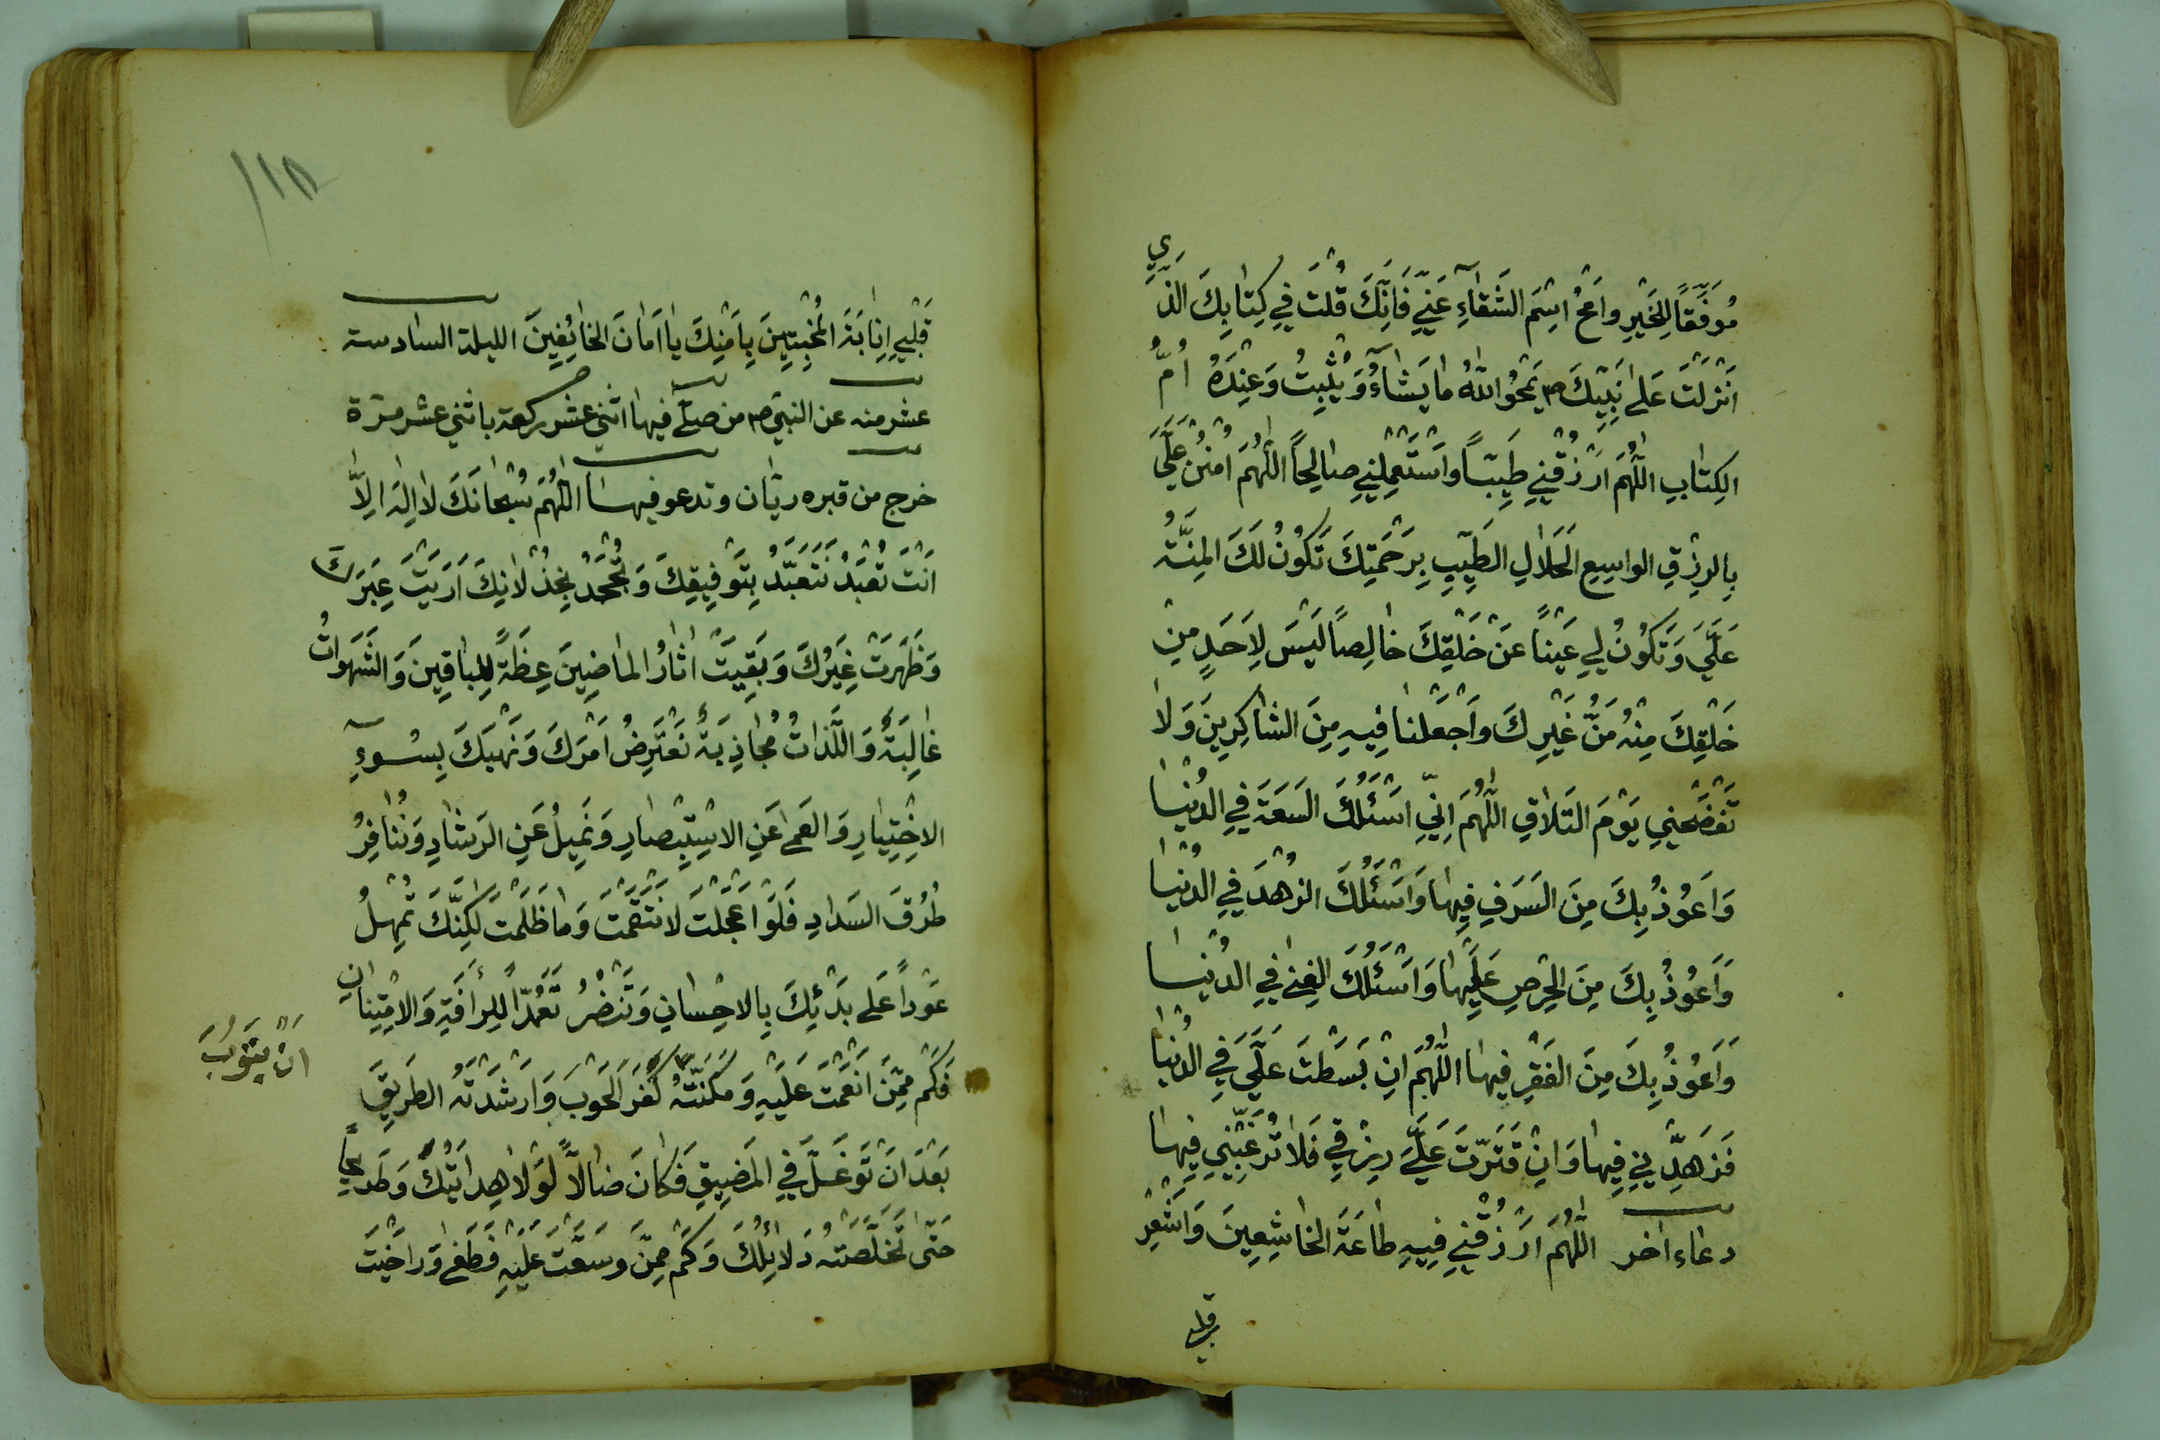 مُوَفَّقًا لِلْخَيْرِ وَامْحُ اسْمَ الشَّقَاءِ عَنِّي فَاِنَّكَ قُلْتَ فِي كِتَابِكَ الَّذِي
اَنْزَلْتَ عَلٰى نَبِيِّكَ ص يَمْحُو اللّٰهُ مَا يَشَاءُ وَيُثْبِتُ وَعِنْدَهُ اُمُّ
الكِتَابِ اللّٰهُمَّ ارْزُقْنِي طَيِّبًا وَاسْتَعْمِلْنِي صَالِحًا اللّٰهُمَّ امْنُنْ عَلَيَّ
بِالرِزْقِ الوَاسِعِ الحَلَالِ الطَيِّبِ بِرَحْمَتِكَ تَكُونُ لَكَ المِنَّةُ
عَلَيَّ وَتَكُونُ لِي عَيْنًا عَنْ خَلْقِكَ خَالِصًا لَيْسَ لِاَحَدٍ مِنْ
خَلْقِكَ مِنْهُ مَنٌّ غَيْرِكَ وَاجْعَلْنَا فِيهِ مِنَ الشَّاكِرِينَ وَلَا
تَفْضَحْنِي يَوْمَ التَلَاقِ اللّٰهُمَّ اِنِّي اَسْئَلُكَ السَعَةَ فِي الدُنْيَا
وَاَعُوذُ بِكَ مِنَ السَرَفِ فِيهَا وَاَسْئَلُكَ الزُهْدَ فِي الدُنْيَا
وَاَعُوذُ بِكَ مِنَ الحِرْصِ عَلَيْهَا وَاَسْئَلُكَ الغِنٰى فِي الدُنْيَا
وَاَعُوذُ بِكَ مِنَ الفَقْرِ فِيهَا اللّٰهُمَّ اِنْ بَسَطْتَ عَلَيَّ فِي الدُنْيَا
فَزَهِّدْنِي فِيهَا وَاِنْ قَتَّرْتَ عَلَيَّ رِزْقِي فَلَا تُرَغِّبْنِي فِيهَا
دعاء اخر اللّٰهُمَّ ارْزُقْنِي فِيهِ طَاعَةَ الخَاشِعِينَ وَاشْعِرْ
قلبي
١١٨
قَلْبِي اِنَابَةَ المُخْبِتِينَ بِاَمْنِكَ يَا اَمَانَ الخَائِفِينَ الليلة السادسة
عشر منه عن النبي ص من صلى فيها اثنى عشر ركعة باثني عشر مرة
خرج من قبره ريّان وتدعو فيها اللّٰهُمَّ سُبْحَانَكَ لَا اِلٰهَ اِلَّا
اَنْتَ تُعْبَدُ نَتَعَبَّدُ بِتَوْفِيقِكَ وَتُجْحَدُ بِخِذْلَانِكَ اَرَيْتَ عِبَرَكَ
وَظَهَرَتْ غِيَرُكَ وَبَقِيَتْ اٰثَارُ المَاضِينَ عِظَةً لِلبَاقِينَ وَالشَهَوَاتُ
غَالِبَةٌ وَاللَّذَاتُ مُجَاذِبَةٌ نَعْتَرِضُ اَمْرَكَ وَنَهْيَكَ بِسُوءِ
الاخْتِيَارِ وَالعَمٰى عَنِ الاسْتِبْصَارِ وَنَمِيلُ عَنِ الرَشَادِ وَنُنَافِرُ
طُرُقَ السَدَادِ فَلَوْ عَجَّلْتَ لَانْتَقَمْتَ وَمَا ظَلَمْتَ لٰكِنَّكَ تُمْهِلُ
عَوْدًا عَلٰى بَدْئِكَ بِالاحْسَانِ وَتَنْضُرُ تَعَمُّدًا لِلرَأفَةِ وَالامْتِنَانِ
فَكَمْ مِمَّنْ اَنْعَمْتَ عَلَيْهِ وَمَكَّنْتَهُ كَفَرَ الحَوْبَ وَاَرْشَدْتَهُ الطَرِيقَ
اَنْ يَتُوبَ
بَعْدَ اَنْ تَوَغَّلَ فِي المَضِيقِ فَكَانَ ضَالًّا لَوْلَا هِدَايَتُكَ وَطَرِيحًا
حَتّٰى تَخَلَّصَتْهُ دَلَائِلُكَ وَكَمْ مِمَّنْ وَسَّعْتَ عَلَيْهِ فَطَغٰى وَرَاخَيْتَ